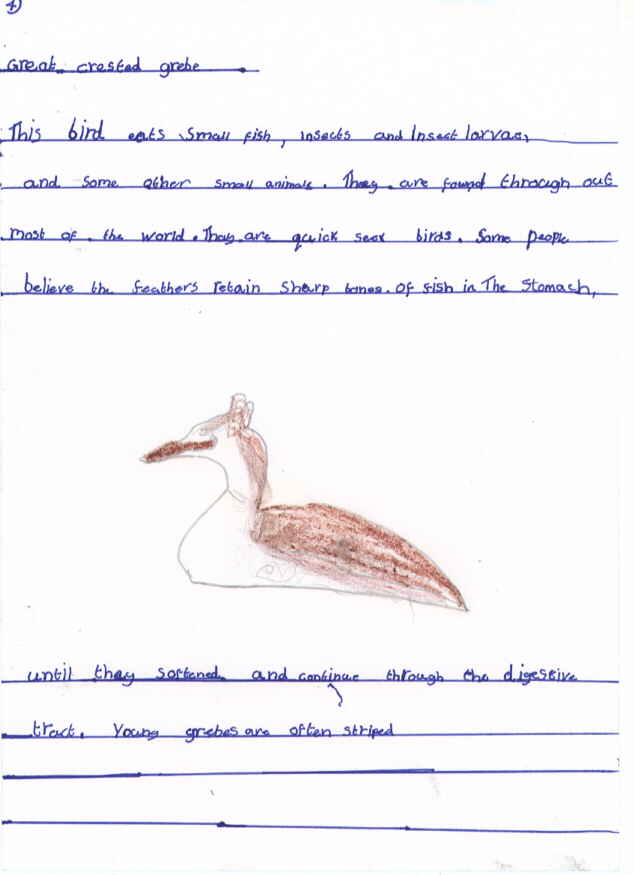 Great crested grebe
This bird eats small fish, insects and Insect larvae,
and some other small animals. They are found through out
most of the world. They are quick seek birds. Some people
believe the feathers retain sharp bones. Of fish in The Stomach,
until they softened and continue through the digestive
tract. Young grebes are often striped